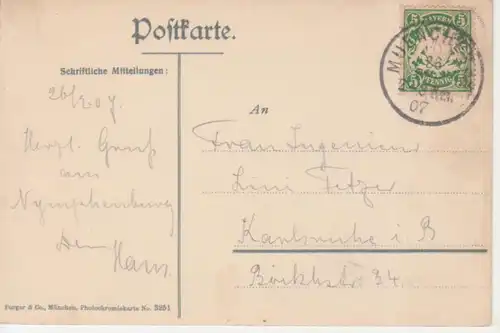 Postkarte.
BAYERN
5 5
PFENNIG
MÜNCHEN
26
07
Schriftliche Mitteilungen:
26/2 07.
Herzl. Gruß
aus
Nymphenburg
Dein
Hans.
An
Frau Ingenieur
Lini Petzer
Karlsruhe i B
34.
Purger & Co., München, Photochromiekarte No. 5251